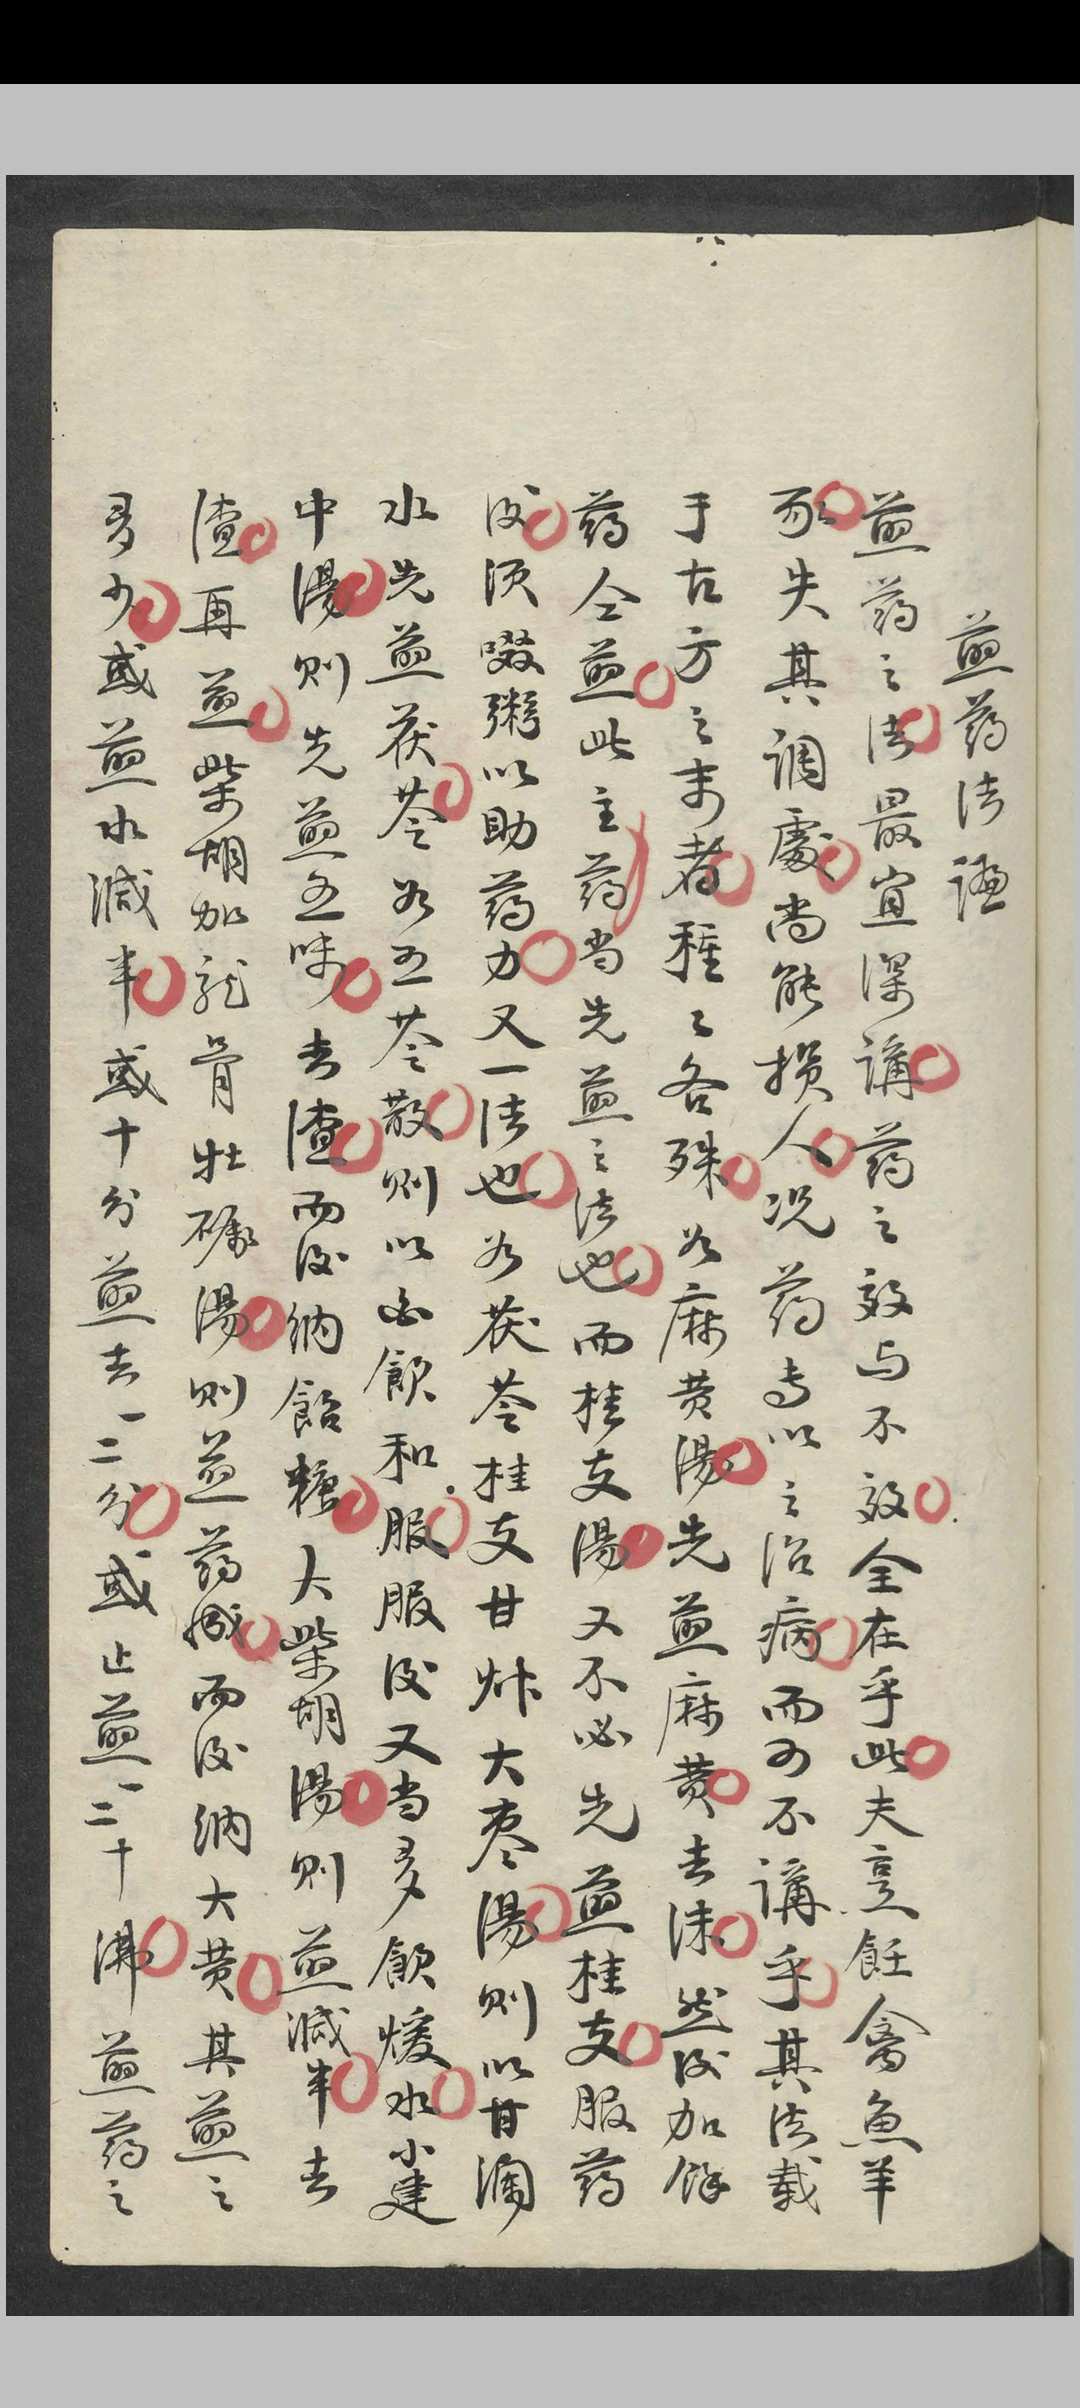 煎药法論
煎药之法最宜深講药之效与不效全在乎此夫烹飪禽魚羊
豕失其調度尚能损人况药专以之治病而可不講乎其法載
于古方之末者種〻各殊如麻黄湯先煎麻黄去沫然後加餘
药仝煎此主药当先煎之法也而桂支湯又不必先煎桂支服药
後须啜粥以助药力又一法也如茯苓桂支甘艸大枣湯則以甘瀾
水先煎茯苓如五苓散則以白飲和服服後又当多飲煖水小建
中湯則先煎五味去渣而後纳飴糖大柴胡湯則煎減半去
渣再煎柴胡加龍骨牡礪湯則煎药成而後纳大黄其煎之
多少或煎水減半或十分煎去一二分或止煎一二十沸煎药之